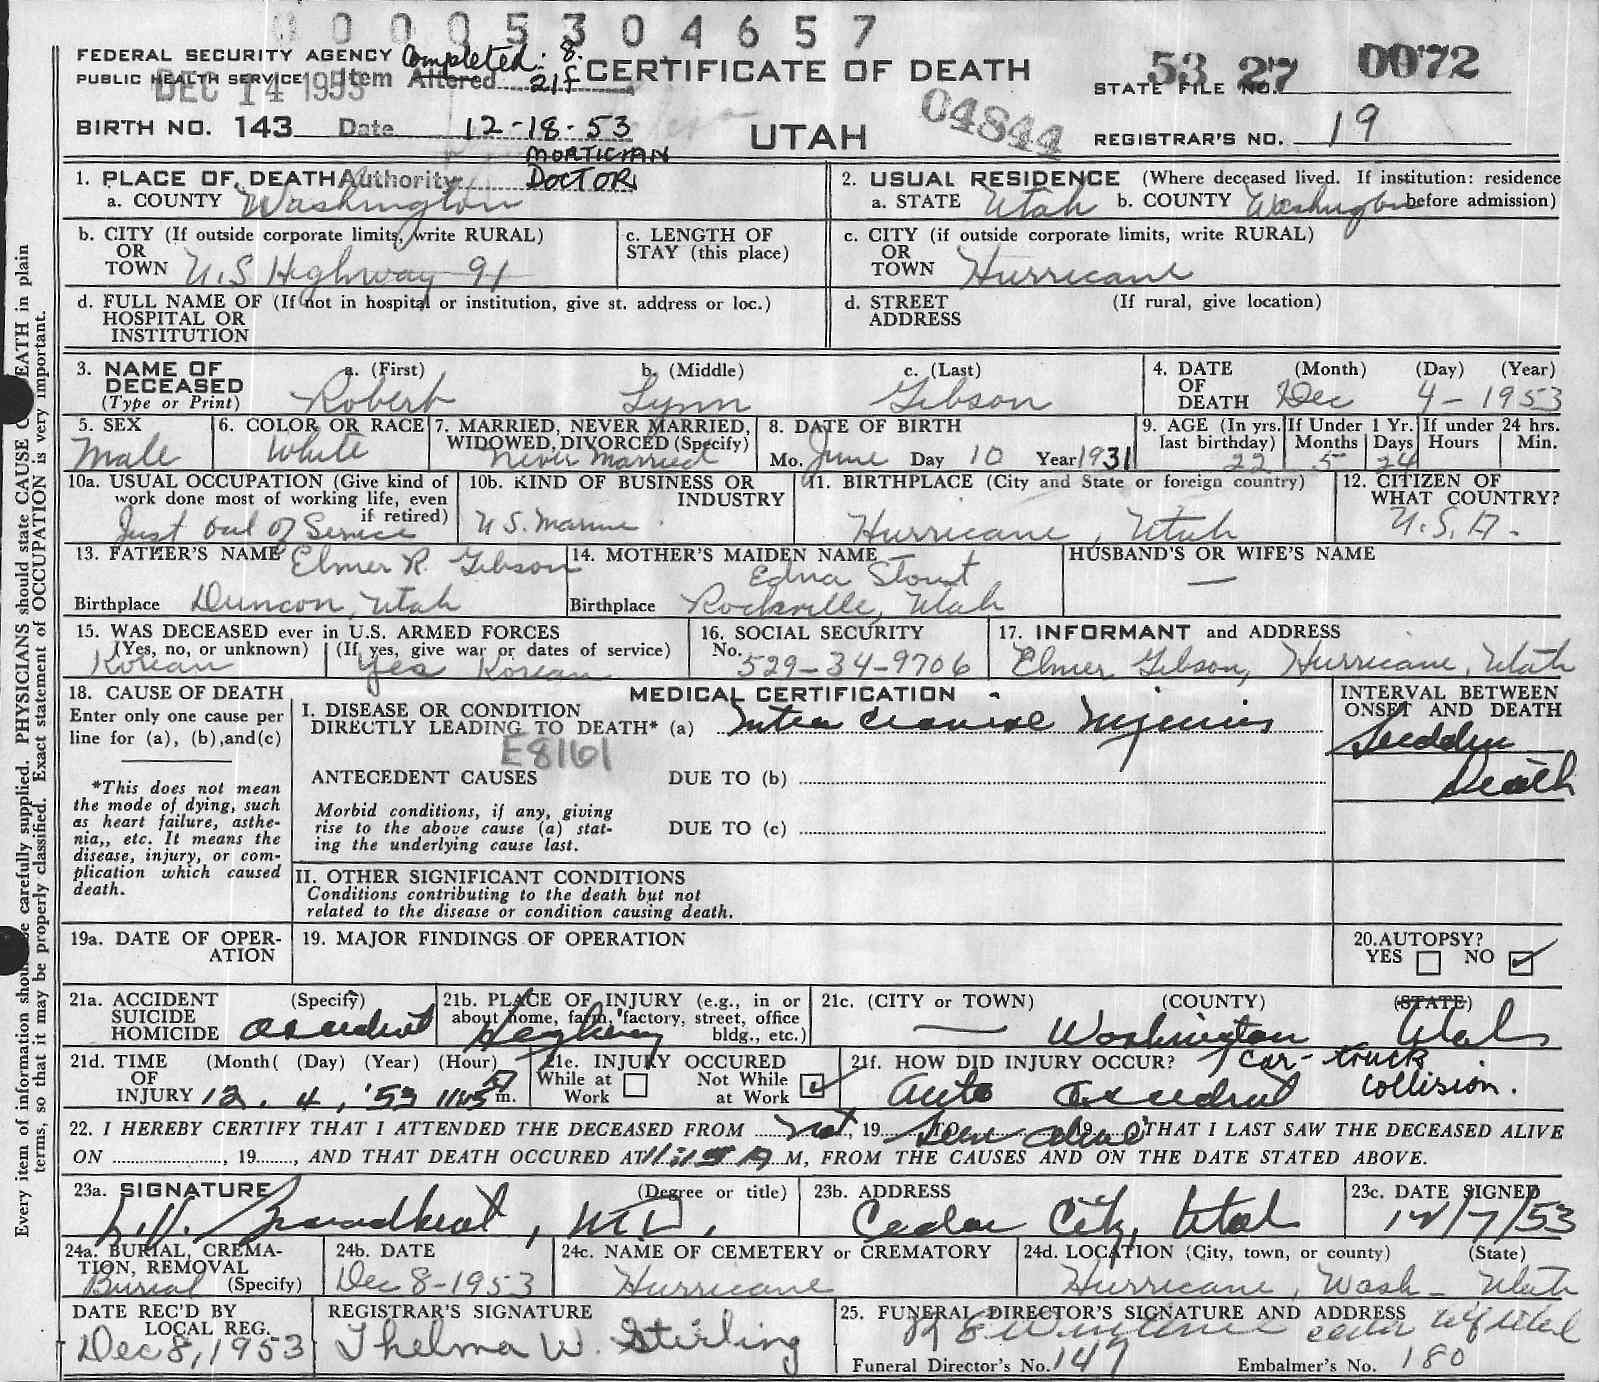 00005304657
FEDERAL SECURITY AGENCY Completed: 8.
PUBLIC HEALTH SERVICE Item Altered 21f CERTIFICATE OF DEATH
DEC 14 1953
STATE FILE NO. 53 27 0072
04844
BIRTH NO. 143 Date 12-18-53 UTAH REGISTRAR'S NO. 19
MORTICIAN
1. PLACE OF DEATH Authority DOCTOR
a. COUNTY Washington
2. USUAL RESIDENCE (Where deceased lived. If institution: residence
a. STATE Utah b. COUNTY Washington before admission)
b. CITY (If outside corporate limits, write RURAL)
OR
TOWN U.S Highway 91
c. LENGTH OF
STAY (this place)
c. CITY (if outside corporate limits, write RURAL)
OR
TOWN Hurricane
d. FULL NAME OF (If not in hospital or institution, give st. address or loc.)
HOSPITAL OR
INSTITUTION
d. STREET (If rural, give location)
ADDRESS
3. NAME OF a. (First) b. (Middle) c. (Last)
DECEASED
(Type or Print) Robert Lynn Gibson
4. DATE (Month) (Day) (Year)
OF
DEATH Dec 4-1953
5. SEX
Male
6. COLOR OR RACE
White
7. MARRIED, NEVER MARRIED,
WIDOWED, DIVORCED (Specify)
Never Married
8. DATE OF BIRTH
Mo. June Day 10 Year 1931
9. AGE (In yrs. If Under 1 Yr. If under 24 hrs.
last birthday) Months Days Hours Min.
22 5 24
10a. USUAL OCCUPATION (Give kind of
work done most of working life, even
if retired)
Just out of Service
10b. KIND OF BUSINESS OR
INDUSTRY
U S. Marine
11. BIRTHPLACE (City and State or foreign country)
Hurricane, Utah
12. CITIZEN OF
WHAT COUNTRY?
U.S.A.
13. FATHER'S NAME Elmer R. Gibson
Birthplace Duncon, Utah
14. MOTHER'S MAIDEN NAME
Edna Stout
Birthplace Rockville, Utah
HUSBAND'S OR WIFE'S NAME
—
15. WAS DECEASED ever in U.S. ARMED FORCES
(Yes, no, or unknown) (If yes, give war or dates of service)
Korean Yes Korean
16. SOCIAL SECURITY
No. 529-34-9706
17. INFORMANT and ADDRESS
Elmer Gibson, Hurricane, Utah
18. CAUSE OF DEATH
Enter only one cause per
line for (a), (b), and (c)
*This does not mean
the mode of dying, such
as heart failure, asthe-
nia,, etc. It means the
disease, injury, or com-
plication which caused
death.
MEDICAL CERTIFICATION
I. DISEASE OR CONDITION
DIRECTLY LEADING TO DEATH* (a) Intra cranial Injuries
E8161
ANTECEDENT CAUSES DUE TO (b)
Morbid conditions, if any, giving
rise to the above cause (a) stat-
ing the underlying cause last.
DUE TO (c)
INTERVAL BETWEEN
ONSET AND DEATH
Sudden
Death
II. OTHER SIGNIFICANT CONDITIONS
Conditions contributing to the death but not
related to the disease or condition causing death.
19a. DATE OF OPER-
ATION
19. MAJOR FINDINGS OF OPERATION
20. AUTOPSY?
YES NO
21a. ACCIDENT (Specify)
SUICIDE
HOMICIDE accident
21b. PLACE OF INJURY (e.g., in or
about home, farm, factory, street, office
bldg., etc.)
Highway
21c. (CITY or TOWN) (COUNTY) (STATE)
— Washington Utah
21d. TIME (Month( (Day) (Year) (Hour)
OF
INJURY 12. 4, '53 1145 m.
21e. INJURY OCCURED
While at Not While
Work at Work
21f. HOW DID INJURY OCCUR? car-truck
Auto Accident collision.
22. I HEREBY CERTIFY THAT I ATTENDED THE DECEASED FROM Not, 19 Seen alive THAT I LAST SAW THE DECEASED ALIVE
ON , 19 , AND THAT DEATH OCCURED AT M, FROM THE CAUSES AND ON THE DATE STATED ABOVE.
23a. SIGNATURE (Degree or title)
Broadbent, M.D.
23b. ADDRESS
Cedar City, Utah
23c. DATE SIGNED
12/7/53
24a. BURIAL, CREMA-
TION, REMOVAL
Burial (Specify)
24b. DATE
Dec 8-1953
24c. NAME OF CEMETERY or CREMATORY
Hurricane
24d. LOCATION (City, town, or county) (State)
Hurricane, Wash - Utah
DATE REC'D BY
LOCAL REG.
Dec 8, 1953
REGISTRAR'S SIGNATURE
Thelma W. Stirling
25. FUNERAL DIRECTOR'S SIGNATURE AND ADDRESS
Cedar City Utah
Funeral Director's No. 147 Embalmer's No. 180
Every item of information should be carefully supplied. PHYSICIANS should state CAUSE OF DEATH in plain
terms, so that it may be properly classified. Exact statement of OCCUPATION is very important.